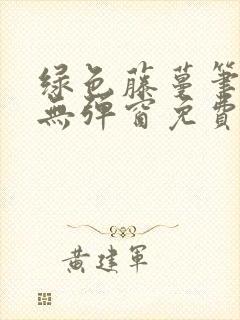 绿色藤蔓笔
無彈窗免費
黄建軍